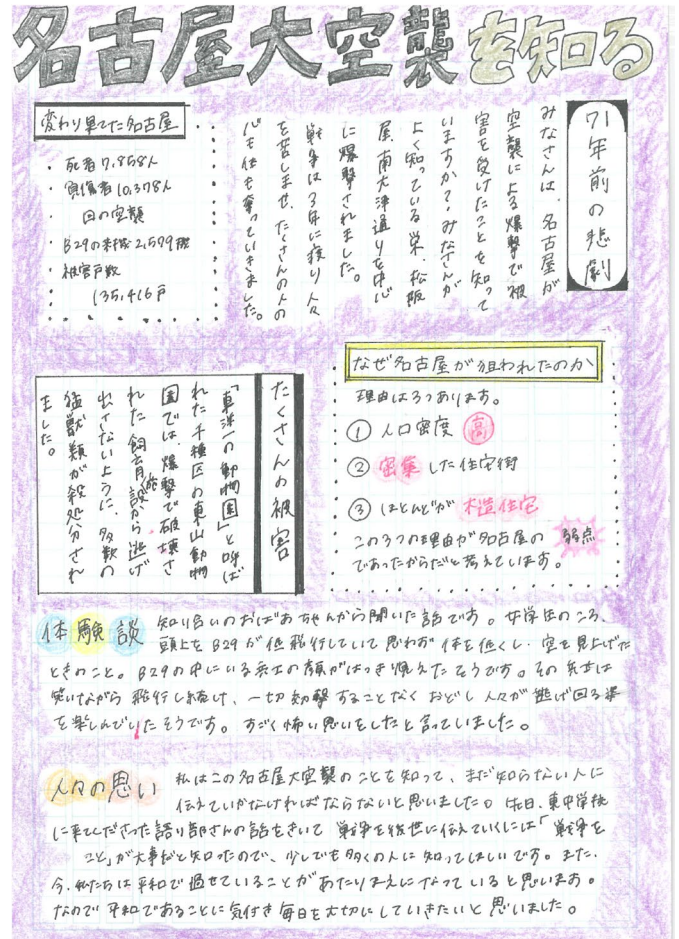 名古屋大空襲を知る
71年前の悲劇
みなさんは、名古屋が
空襲による爆撃で被
害を受けたことを知って
いますか？みなさんが
よく知っている栄、松坂
屋、南大津通りを中心
に爆撃されました。
戦争は3年に渡り人々
を苦しませ、たくさんの人の
心も体も奪っていきました。
変わり果てた名古屋
・死者7,858人
・負傷者10,378人
回の空襲
・B29の来機2,579機
・被害戸数
135,416戸
なぜ名古屋が狙われたのか
理由は3つあります。
①人口密度 高
②密集した住宅街
③ほとんどが木造住宅
この3つの理由が名古屋の弱点
であったからだと考えています。
たくさんの被害
「東洋一の動物園」と呼ば
れた千種区の東山動物
園では、爆撃で破壊さ
れた飼育施設から逃げ
出さないように、多数の
猛獣類が殺処分され
ました。
体験談
知り合いのおばあちゃんから聞いた話です。女学生のころ、
頭上をB29が低飛行していて思わず体を低くし、空を見上げた
ときのこと。B29の中にいる兵士の顔がはっきり見えたそうです。その兵士は
笑いながら飛行し続け、一切攻撃することなくおどし人々が逃げ回る姿
を楽しんでいたそうです。すごく怖い思いをしたと言っていました。
人々の思い
私はこの名古屋大空襲のことを知って、まだ知らない人に
伝えていかなければならないと思いました。昨日、東中学校
に来てくださった語り部さんの話をきいて戦争を後世に伝えていくには「戦争を
こと」が大事だと知ったので、少しでも多くの人に知ってほしいです。また、
今、私たちは平和で過せていることがあたりまえになっていると思います。
なので平和であることに気付き毎日を大切にしていきたいと思いました。